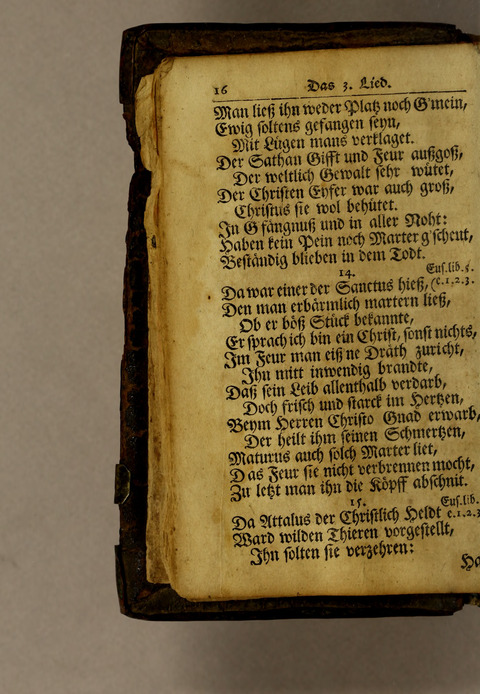 16 Das 3. Lied.
Man ließ ihn weder Platz noch G'mein,
Ewig soltens gefangen seyn,
Mit Lügen mans verklaget.
Der Sathan Gifft und Feur außgoß,
Der weltlich Gewalt sehr wütet,
Der Christen Eyfer war auch groß,
Christus sie wol behütet.
In G'fängnuß und in aller Noht:
Haben kein Pein noch Marter g'scheut,
Beständig blieben in dem Todt.
14. Eus. lib. 5.
Da war einer der Sanctus hieß, (c. 1. 2. 3.
Den man erbärmlich martern ließ,
Ob er böß Stuck bekannte,
Er sprach ich bin ein Christ, sonst nichts,
Im Feur man eißne Dräth zuricht,
Ihn mitt inwendig brandte,
Daß sein Leib allenthalb verdarb,
Doch frisch und starck im Hertzen,
Beym Herren Christo Gnad erwarb,
Der heilt ihm seinen Schmertzen,
Maturus auch solch Marter liet,
Das Feur sie nicht verbrennen mocht,
Zu letzt man ihn die Köpff abschnit.
15. Eus. lib.
Da Attalus der Christlich Heldt c. 1. 2. 3
Ward wilden Thieren vorgestellt,
Ihn solten sie verzehren:
Ha